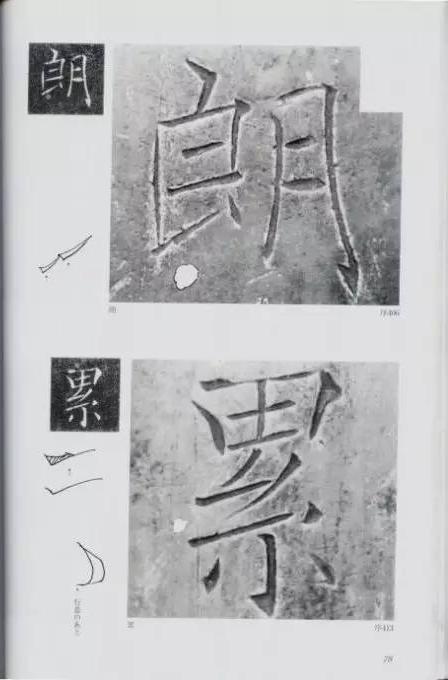 朗
朗
朗
序406
累
累
行意のあと
累
序413
78